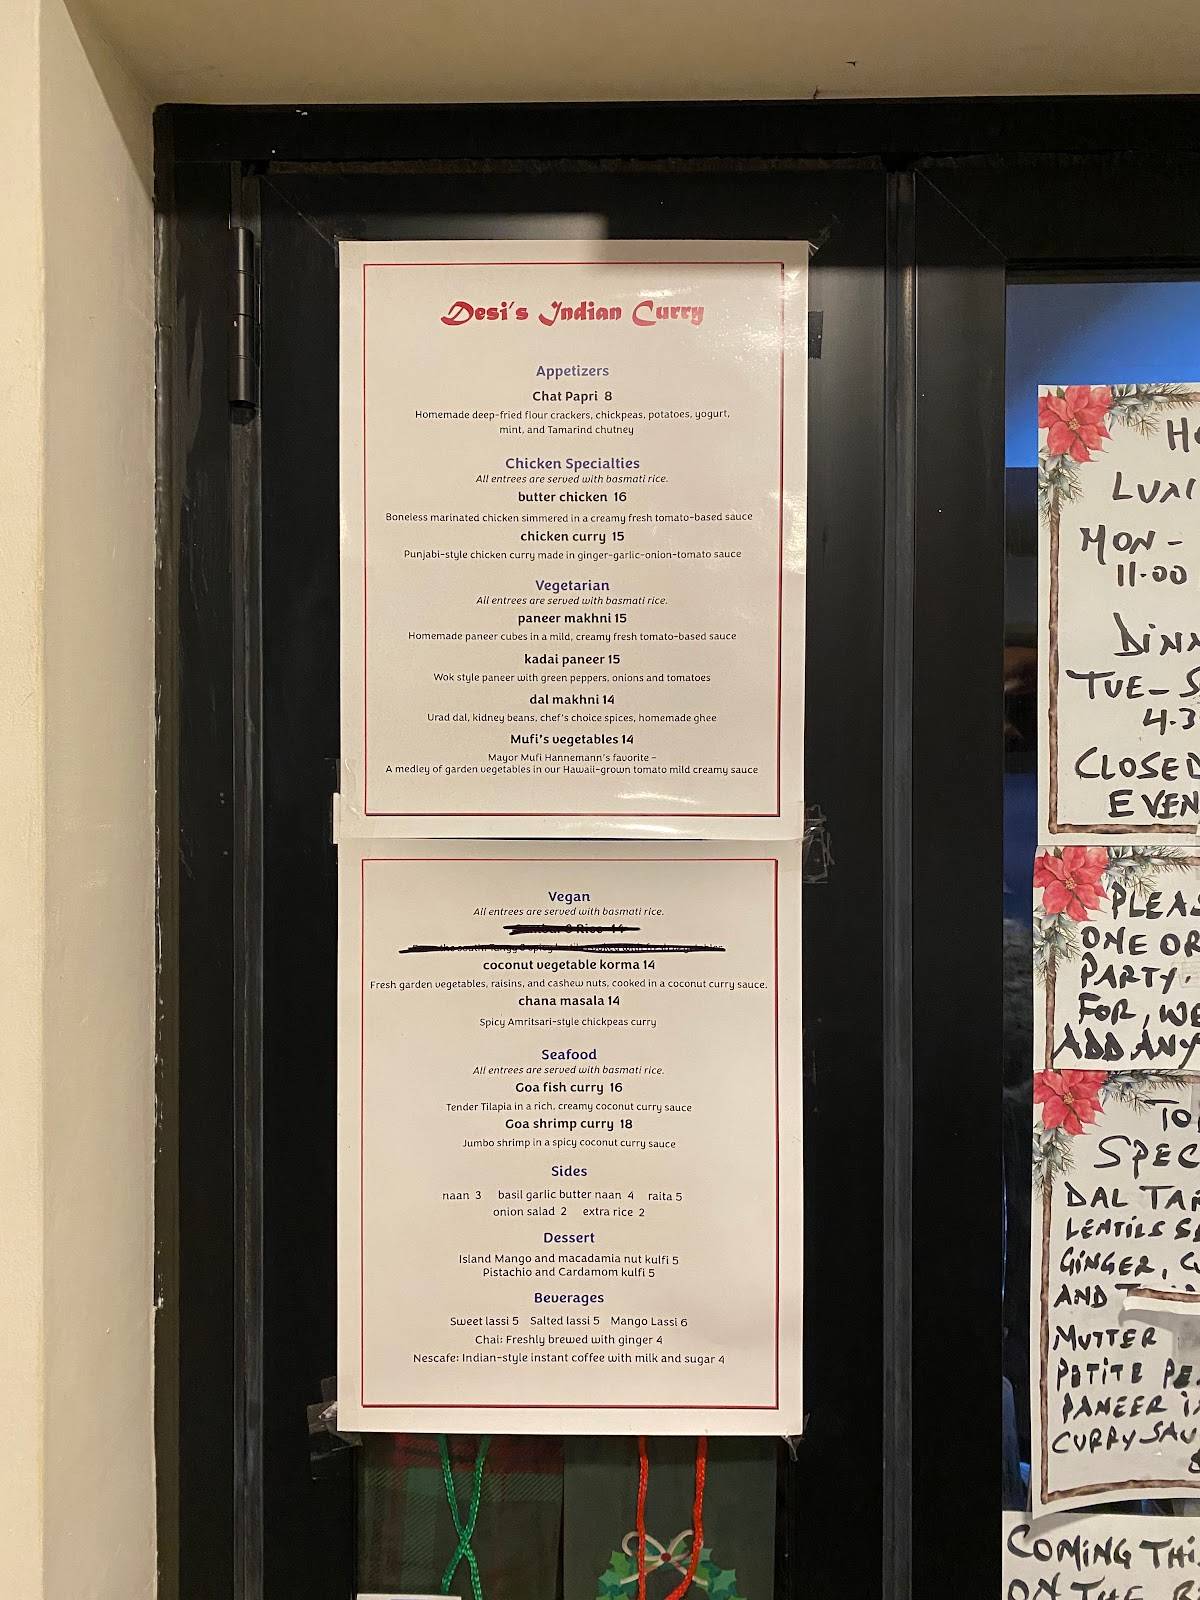 Desi's Indian Curry
Appetizers
Chat Papri 8
Homemade deep-fried flour crackers, chickpeas, potatoes, yogurt,
mint, and Tamarind chutney
Chicken Specialties
All entrees are served with basmati rice.
butter chicken 16
Boneless marinated chicken simmered in a creamy fresh tomato-based sauce
chicken curry 15
Punjabi-style chicken curry made in ginger-garlic-onion-tomato sauce
Vegetarian
All entrees are served with basmati rice.
paneer makhni 15
Homemade paneer cubes in a mild, creamy fresh tomato-based sauce
kadai paneer 15
Wok style paneer with green peppers, onions and tomatoes
dal makhni 14
Urad dal, kidney beans, chef's choice spices, homemade ghee
Mufi's vegetables 14
Mayor Mufi Hannemann's favorite -
A medley of garden vegetables in our Hawaii-grown tomato mild creamy sauce
Vegan
All entrees are served with basmati rice.
coconut vegetable korma 14
Fresh garden vegetables, raisins, and cashew nuts, cooked in a coconut curry sauce.
chana masala 14
Spicy Amritsari-style chickpeas curry
Seafood
All entrees are served with basmati rice.
Goa fish curry 16
Tender Tilapia in a rich, creamy coconut curry sauce
Goa shrimp curry 18
Jumbo shrimp in a spicy coconut curry sauce
Sides
naan 3 basil garlic butter naan 4 raita 5
onion salad 2 extra rice 2
Dessert
Island Mango and macadamia nut kulfi 5
Pistachio and Cardamom kulfi 5
Beverages
Sweet lassi 5 Salted lassi 5 Mango Lassi 6
Chai: Freshly brewed with ginger 4
Nescafe: Indian-style instant coffee with milk and sugar 4
MON -
11.00
TUE-
CLOSED
ONE OR
PARTY.
FOR, WE
ADD ANY
DAL
LENTILS
GINGER,
AND
MUTTER
PETITE
PANEER
CURRY
COMING
ON THE